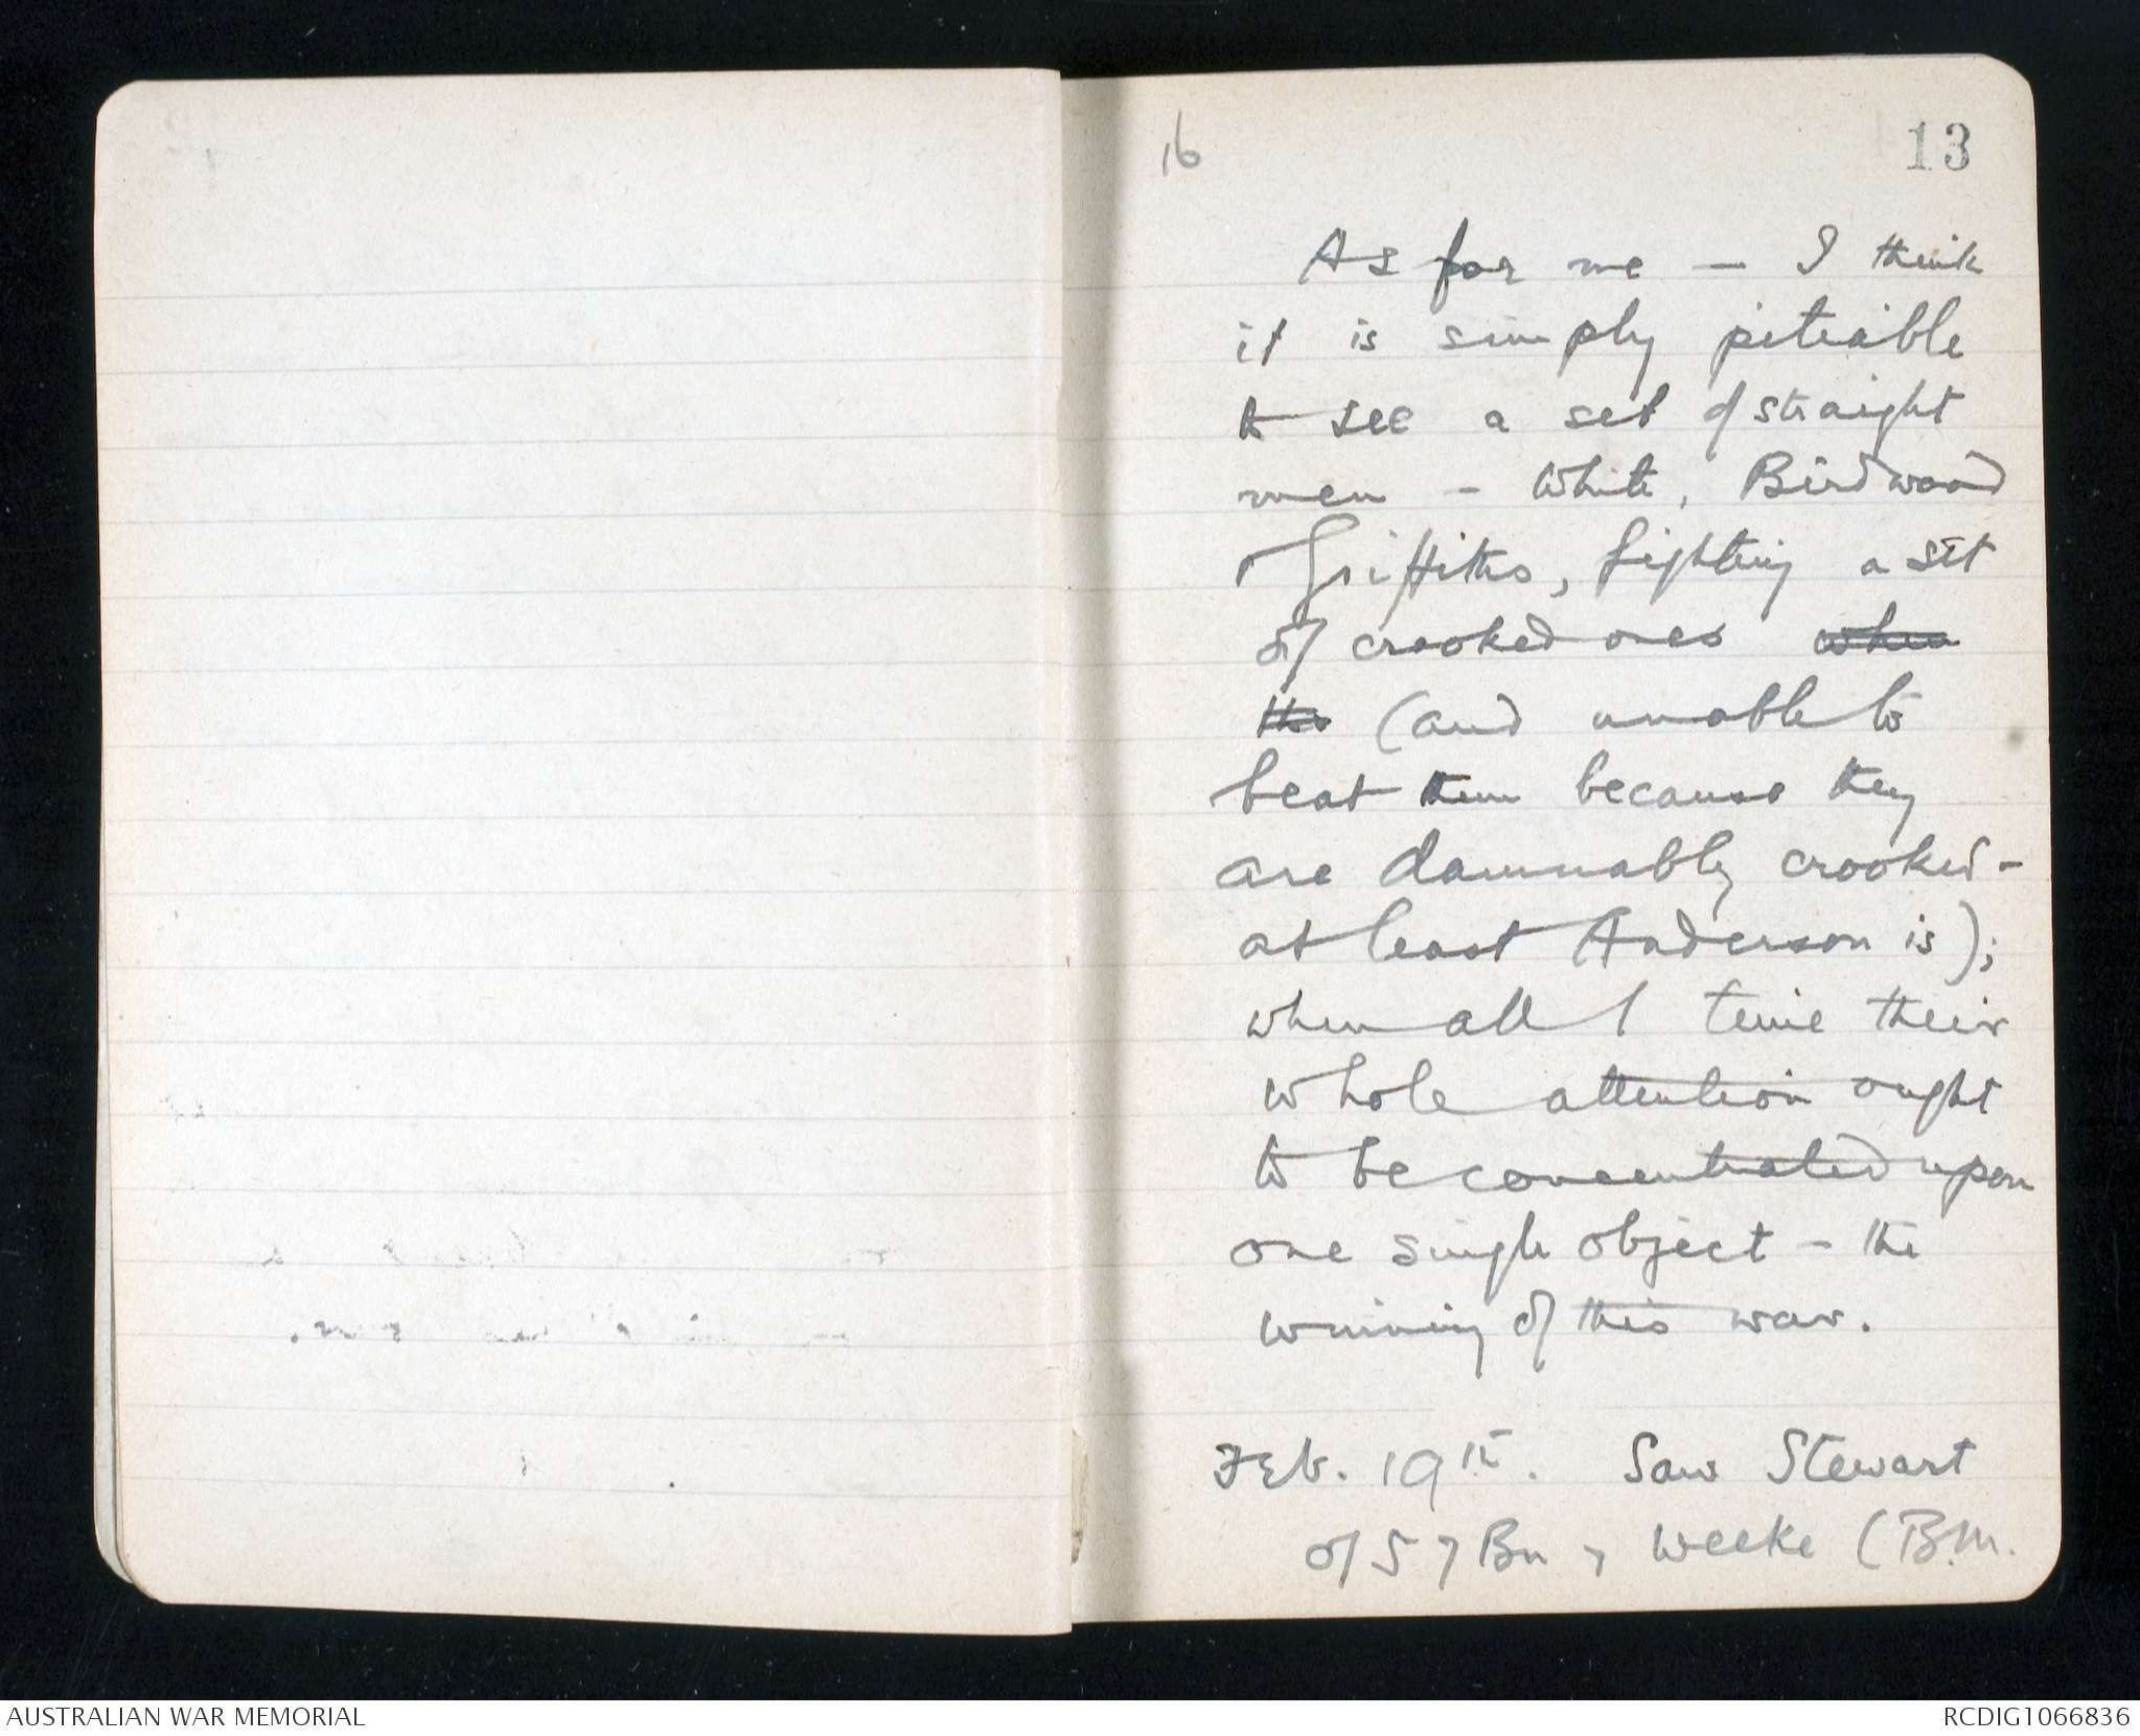 16
13
As for me — I think
it is simply pitiable
to see a set of straight
men - White, Birdwood
Griffiths, fighting a set
of crooked ones when
the (and unable to
beat them because they
are damnably crooked -
at least Anderson is);
when all / time their
whole attention ought
to be concentrated upon
one single object - the
winning of this war.
Feb. 19th. Saw Stewart
of 57 Bn , Weeke (B.M.
AUSTRALIAN WAR MEMORIAL
RCDIG1066836